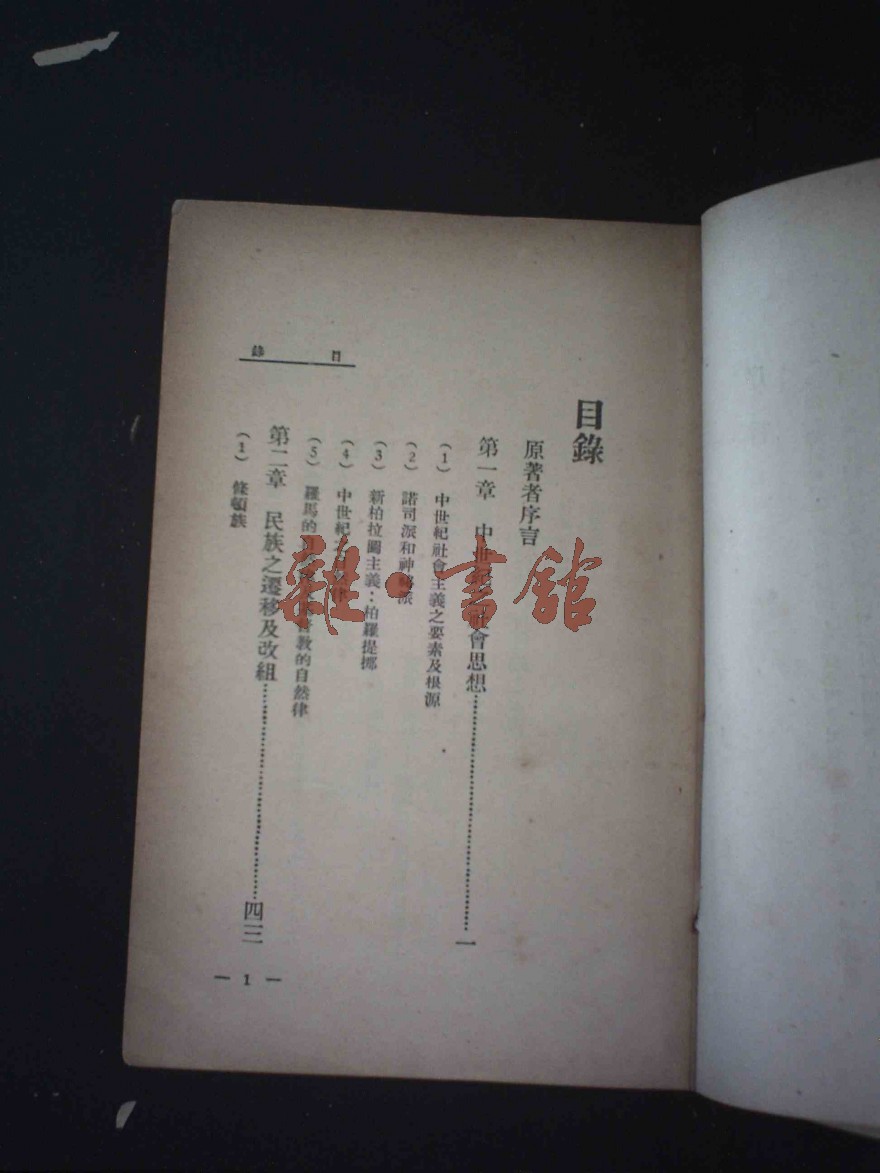 目錄
原著者序言
第一章 中世紀之社會思想……一
(1) 中世紀社會主義之要素及根源
(2) 諾司派和神秘派
(3) 新柏拉圖主義：柏羅提挪
(4) 中世紀之 律
(5) 羅馬的 教的自然律
第二章 民族之遷移及改組……四三
(1) 條頓族
目錄
— 1 —
雜·書館